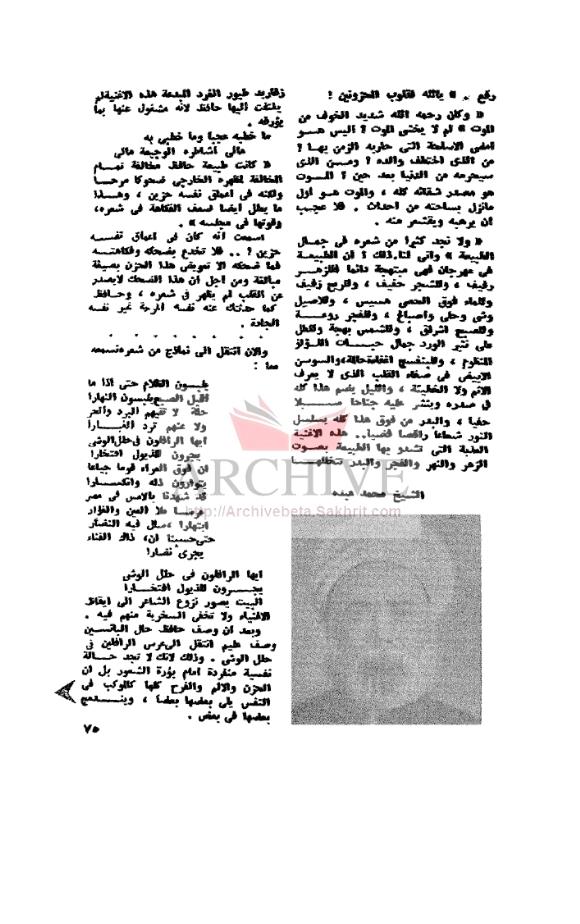 رقع .. » يالله لقلوب المحزونين !
« وكان رحمه الله شديد الخوف من
الموت » لم لا يخشى الموت ؟ أليس هو
أمضى الأسلحة التي حاربه الزمن بها ؟
من الذى اختطف والده ؟ ومن الذى
سيحرمه من الدنيا بعد حين ؟ الموت
هو مصدر شقائه كله ، والموت هو أول
مانزل بساحته من أحداث . فلا عجب
أن يرهبه ويقشعر منه .
« ولا تجد كثيرا من شعره فى جمال
الطبيعة » وأنى له ذلك ؟ ان الطبيعة
فى مهرجان فهى مبتهجة دائما فللزهر
رفيف ، وللشجر حفيف ، وللريح زفيف
وللماء فوق الحصى هسيس ، وللأصيل
وشى وحلى وأصباغ ، وللفجر روعة
وللصبح اشراق ، وللشمس بهجة وللطل
على نثير الورد جمال حبات اللؤلؤ
المنظوم ، وللبنفسج حالة والسوسن
الأبيض فى صفاء القلب الذى لا يعرف
الاثم ولا الخطيئة ، والليل يضم هذا كله
فى صدره وينشر عليه جناحا
، والبدر من فوق هذا كله يسلسل
النور شعاعا راقصا فضيا.. هذه الأغنية
العذبة التى تشدو بها الطبيعة بصوت
الزهر والنهر والفجر والبدر تتخللها
الشيخ محمد عبده
زغاريد طيور الغرد المبدعة هذه الأغنية لم
يلتفت اليها حافظ لأنه مشغول عنها بما
يؤرقه .
ما خطبه عجبا وما خطبى به
مالى أشاطره الوجيعة مالى
« كانت طبيعة حافظ مخالفة تمام
المخالفة لمظهره الخارجى ضحوكا مرحا
ولكنه فى أعماق نفسه حزين ، وهذا
ما يعلل أيضا ضعف الفكاهة فى شعره،
وقوتها فى مجلسه » .
أسمعت أنه كان فى أعماق نفسه
حزين ؟ .. فلا تخدع بضحكه وفكاهته
فما ضحكه الا تعويض هذا الحزن بصيغة
مبالغة ومن أجل أن هذا الضحك لايصدر
عن القلب لم يظهر فى شعره ، وحافظ
كما حدثتك عنه نفسه المرحة غير نفسه
الجادة .
والآن أنتقل الى نماذج من شعره نسمعه
معا :
يلبسون الظلام حتى اذا ما
أقبل الصبح يلبسون النهارا
حلة لا تقيهم البرد والحر
ولا عنهم ترد الغبارا
أيها الرافلون فى حلل الوشى
يجرون للذيول افتخارا
ان فوق العراء قوما جياعا
يتوارون ذلة وانكسارا
قد شهدنا بالأمس فى مصر
عرسا ملأ العين والفؤاد
ابتهارا ،سال فيه النضار
حتى حسبنا أن، ذاك الفناء
يجرى نضارا
أيها الرافلون فى حلل الوشى
يجرون للذيول افتخارا
البيت يصور نزوع الشاعر الى ايقاظ
الأغنياء ولا تخفى السخرية منهم فيه .
وبعد أن وصف حافظ حال البائسين
وصف عليم انتقل الى عرس الرافلين فى
حلل الوشى . وذلك لأنك لا تجد حالة
نفسية منفردة أمام بؤرة الشعور بل ان
الحزن والألم والفرح كلها كالموكب فى
النفس يلى بعضها بعضا ، ويندمج
بعضها فى بعض .
٧٥
ARCHIVE
http://Archivebeta.Sakhrit.com